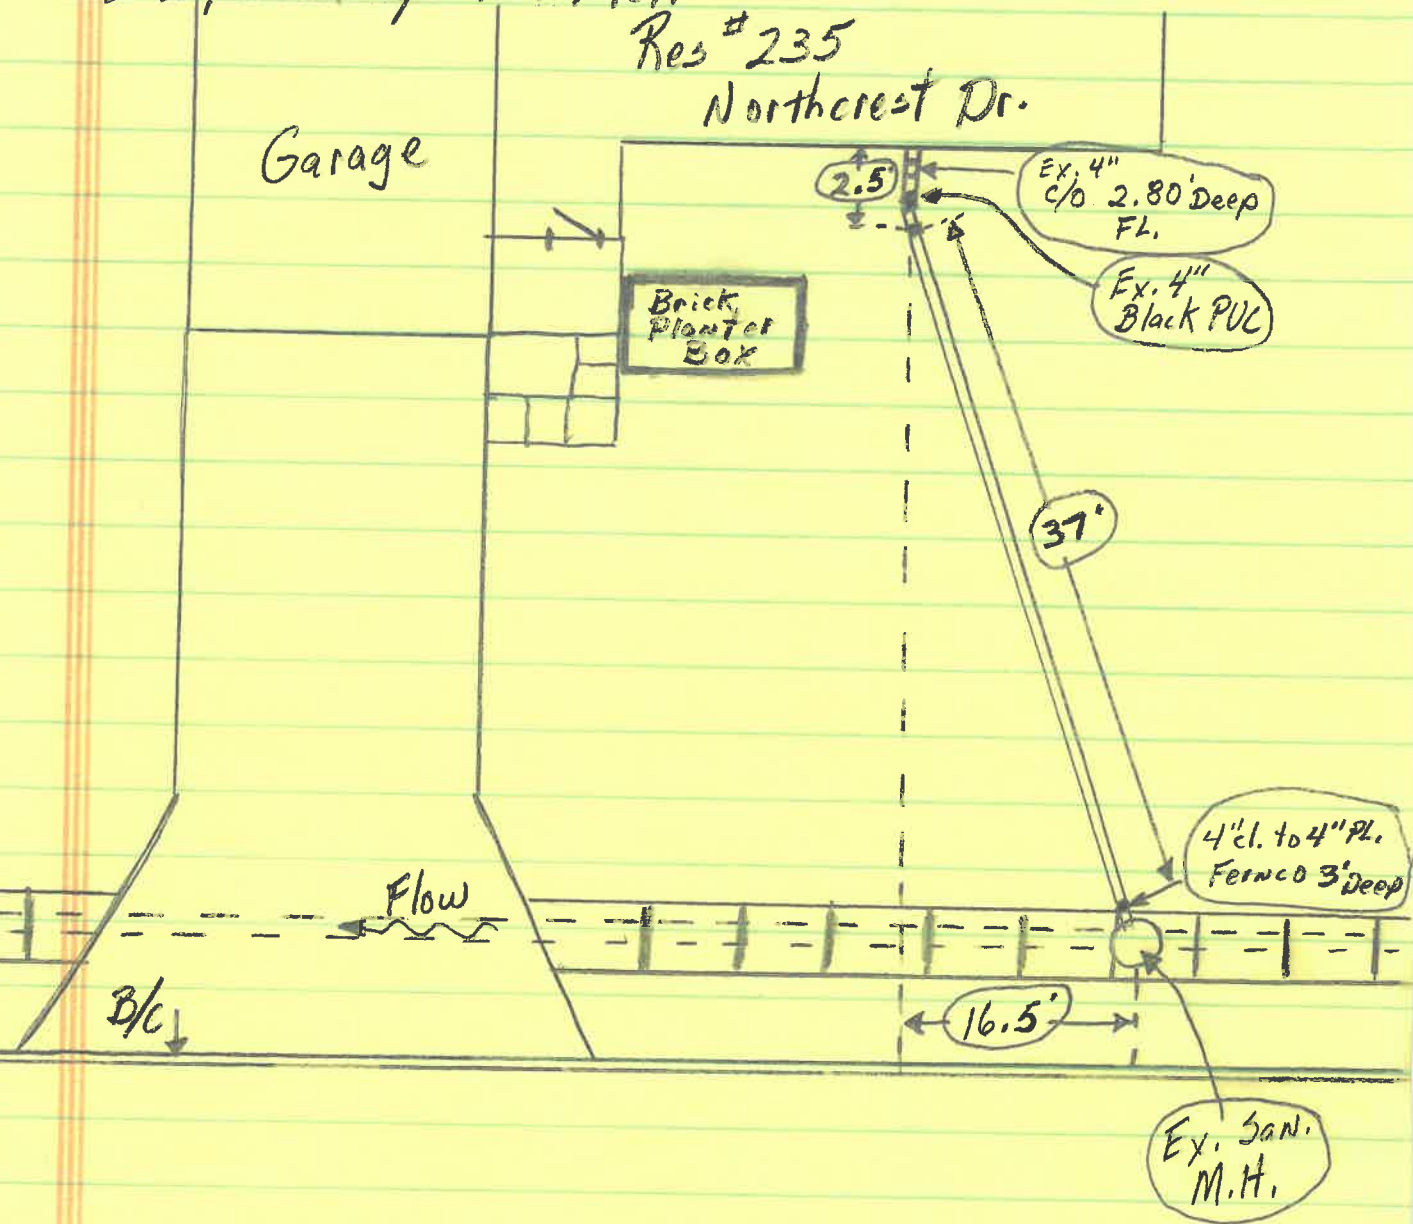 Res # 235
Northcrest Dr.
Garage
2.5'
Ex. 4"
c/o 2.80' Deep
FL.
Ex. 4"
Black PVC
Brick
Planter
Box
37'
4" cl. to 4" PL.
Fernco 3' Deep
Flow
B/C
16.5'
Ex. San.
M.H.